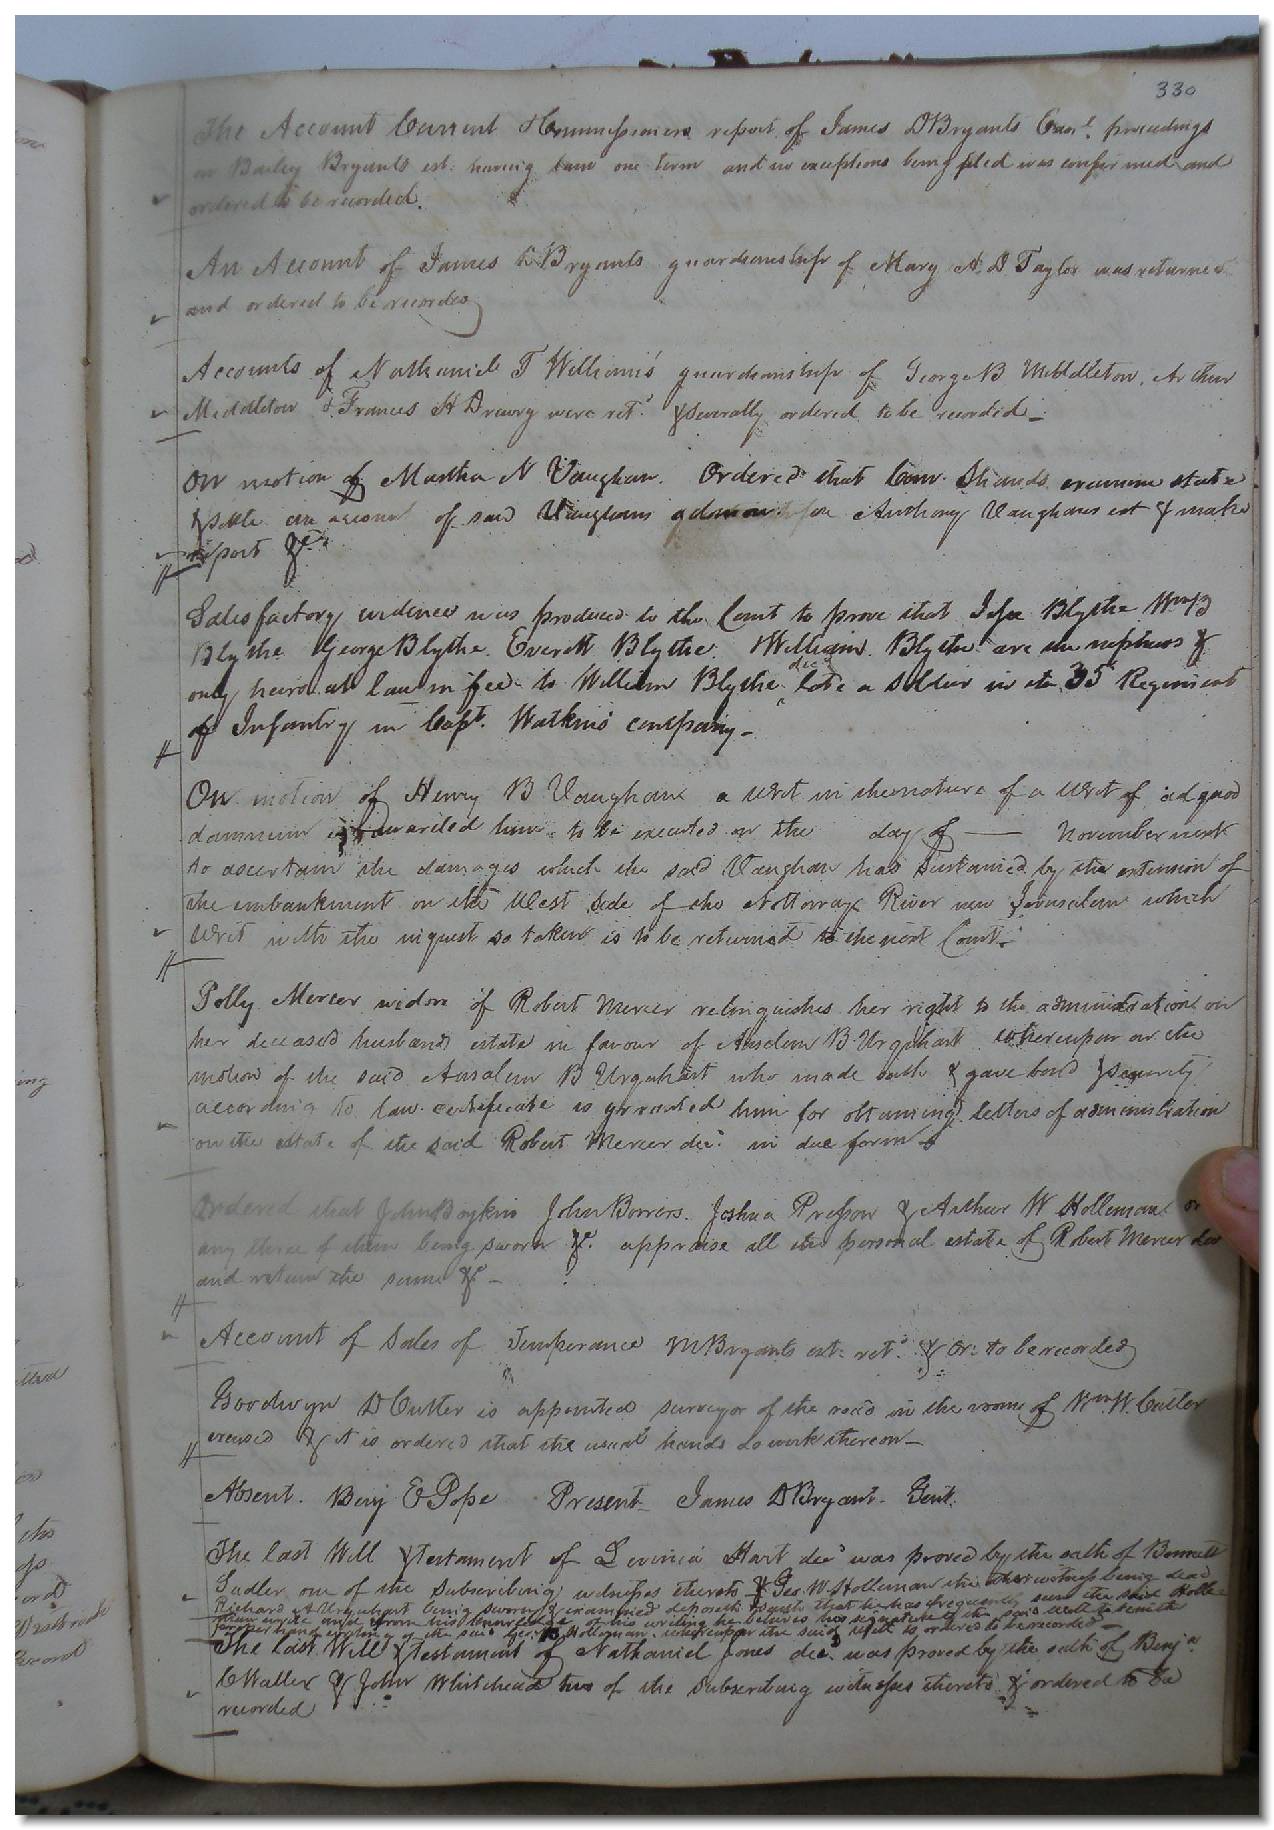 330
The Account Current & Commissioners report of James D Bryants Exor. proceedings
on Bailey Bryants est: having lain one term and no exceptions being filed was confirmed and
ordered to be recorded.
An Account of James D Bryants guardianship of Mary A. D Taylor was returned
and ordered to be recorded
Accounts of Nathaniel T Williams guardianship of George B Middleton, Arthur
Middleton & Frances H Drewry were retd. & severally ordered to be recorded —
On motion of Martha N Vaughan. Ordered that Com. Shands examine state
& settle an account of said Vaughans admon of Anthony Vaughans est & make
report &c.
Satisfactory evidence was produced to the Court to prove that Blythe Wm B
Blythe George Blythe Everett Blythe William Blythe are the nephews &
only heirs at law in fee to William Blythe decd late a soldier in the 35 Regiment
of Infantry in Capt. Watkins company —
On motion of Henry B Vaughan a Writ in the nature of a Writ of ad quod
damnum is awarded him to be executed on the day of — November next
to ascertain the damages which the said Vaughan has sustained by the extension of
the embankment on the West side of the Nottoway River near Jerusalem which
Writ with the inquest so taken is to be returned to the next Court —
Polly Mercer widow of Robert Mercer relinquishes her right to the administration on
her deceased husbands estate in favour of Anselem B Urquhart whereupon on the
motion of the said Anselem B Urquhart who made oath & gave bond & security
according to law certificate is granted him for obtaining letters of administration
on the estate of the said Robert Mercer decd. in due form
Ordered that John Boykin John Borrers. Joshua Presson & Arthur W Holleman or
any three of them being sworn &c. appraise all the personal estate of Robert Mercer dec
and return the same &c —
Account of Sales of Temperance M Bryants est: retd. & Or: to be recorded
Goodwyn D Cutler is appointed surveyor of the road in the room of Wm. W. Cutler
excused & it is ordered that the usual hands do work thereon —
Absent. Benj E Pope Present James D Bryant. Gent.
The last Will & testament of Levinia Hart decd was proved by the oath of Bennett
Sadler one of the subscribing witnesses thereto & Geo. W. Holleman the other witness being dead
Richard A Urquhart being sworn & examined deposeth & saith that he has frequently seen the said Holle
man write and from his knowledge of his writing he believes his signature to the said Will to be in the
proper hand writing of the said Geo. W Holleman, whereupon the said Will is ordered to be recorded —
The last Will & testament of Nathaniel Jones decd. was proved by the oath of Benja
C Waller & John Whitehead two of the subscribing witnesses thereto & ordered to be
recorded